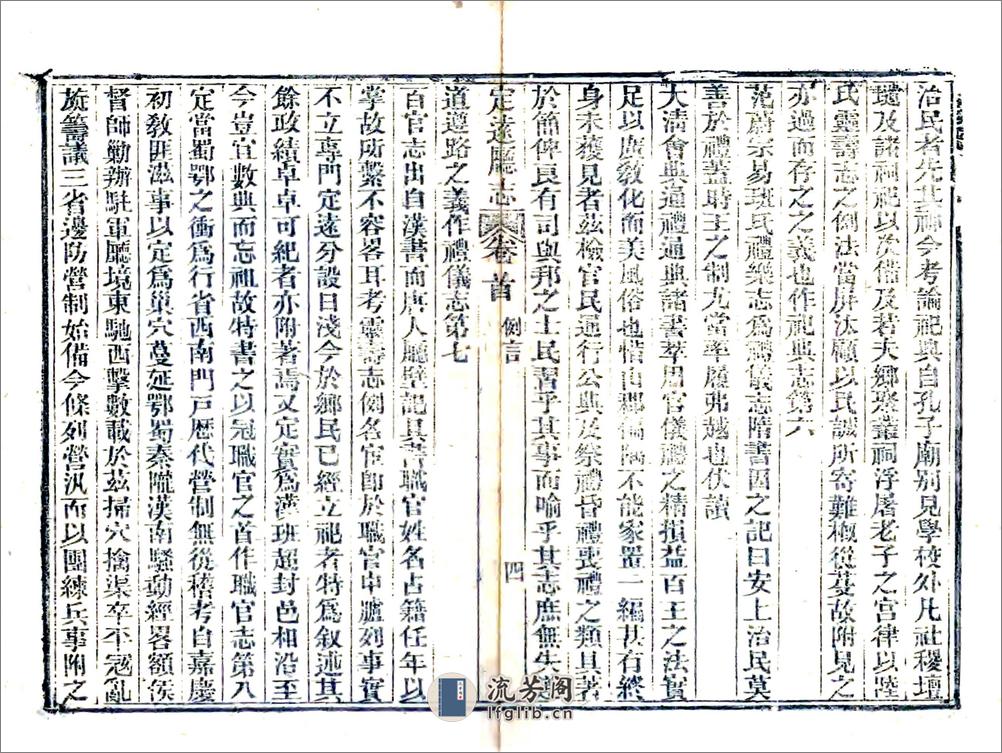 治民者先其神今考論祀典自孔子廟別見學校外凡社稷壇
壝及諸祠祀以次備及若夫鄉聚叢祠浮屠老子之宮律以陸
氏靈壽志之例法當屏汰顧以民誠所寄難概從芟故附見之
亦過而存之之義也作祀典志第六
范蔚宗易班氏禮樂志為禮儀志隋書因之記曰安上治民莫
善於禮蓋時王之制尤當率履弗越也伏讀
大清會典通禮通典諸書萃周官儀禮之精損益百王之法實
足以廣教化而美風俗也惜山郡偏隅不能家置一編甚有終
身未獲見者茲檢官民通行公典及祭禮昏禮喪禮之類且著
於簡俾良有司與邦之士民習乎其事而喻乎其志庶無失
定遠廳志 卷首 例言 四
道遵路之義作禮儀志第七
百官志出自漢書而唐人廳壁記具書職官姓名占籍任年以
掌故所繫不容畧耳考靈壽志例名宦即於職官中臚列事實
不立專門定遠分設日淺今於鄉民已經立祀者特為叙述其
餘政績卓卓可紀者亦附著焉又定實為漢班超封邑相沿至
今豈宜數典而忘祖故特書之以冠職官之首作職官志第八
定當蜀鄂之衝為行省西南門戶歷代營制無從稽考自嘉慶
初教匪滋事以定為巢穴蔓延鄂蜀秦隴漢南騷動經畧額侯
督師勦辦駐軍廳境東馳西擊數載於茲掃穴擒渠卒平寇亂
旋籌議三省邊防營制始備今條列營汛而以團練兵事附之
流芳閣
lfglib.cn